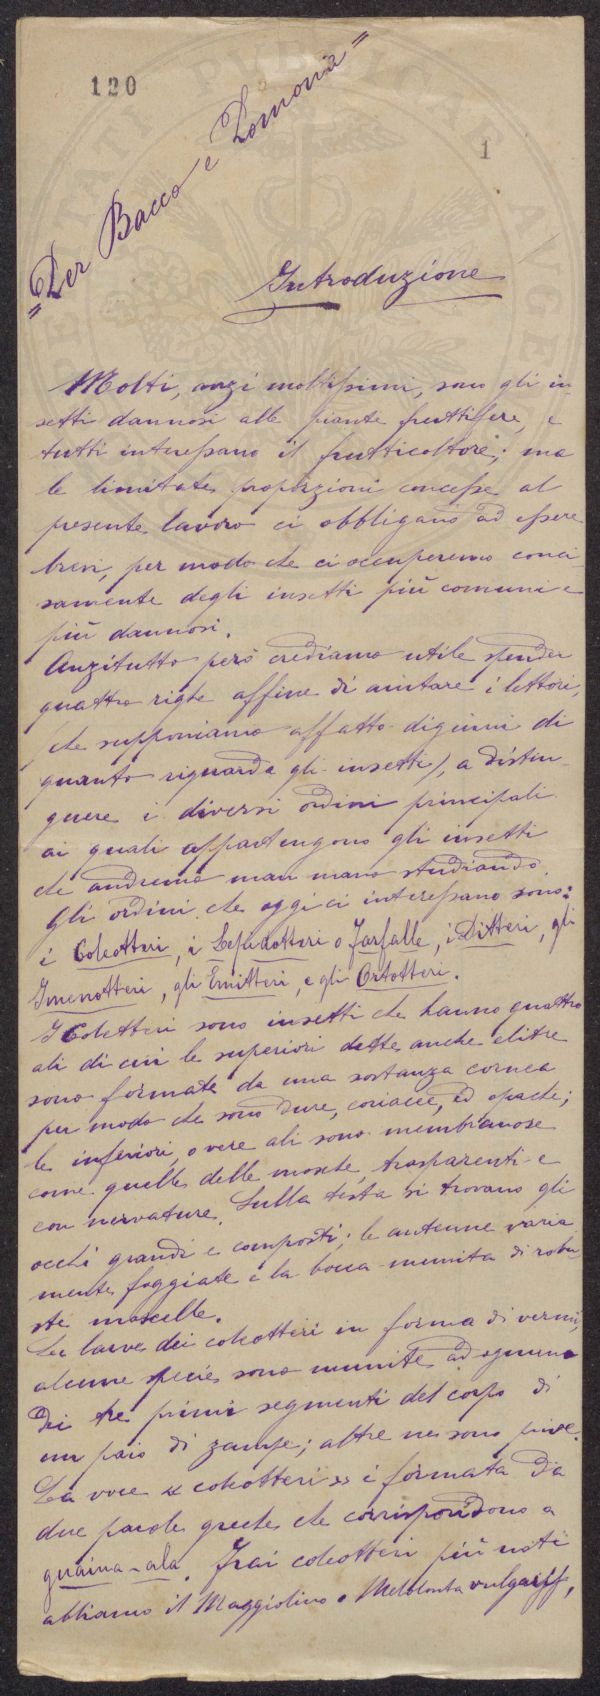 120
1
"Per Bacco e Pomona"
Introduzione
Molti, anzi moltissimi, sono gli in-
setti dannosi alle piante fruttifere, e
tutti interessano il frutticoltore; ma
le limitate proporzioni concesse al
presente lavoro ci obbligano ad essere
brevi, per modo che ci occuperemo conci
samente degli insetti più comuni e
più dannosi.
Anzitutto però crediamo utile spender
quattro righe affine di aiutare i lettori,
che supponiamo affatto digiuni di
quanto riguarda gli insetti), a distin-
guere i diversi ordini principali
ai quali appartengono gli insetti
che andremo man mano studiando.
Gli ordini che oggi ci interessano sono:
i Coleotteri, i Lepidotteri o Farfalle, i Ditteri, gli
Imenotteri, gli Emitteri, e gli Ortotteri.
I Coleotteri sono insetti che hanno quattro
ali di cui le superiori dette anche elitre
sono formate da una sostanza cornea
per modo che sono dure, coriacee, ed opache;
le inferiori, o vere ali sono membranose
come quelle delle mosche, trasparenti e
con nervature. Sulla testa si trovano gli
occhi grandi e composti; le antenne varia
mente foggiate e la bocca munita di robu
ste mascelle.
Le larve dei coleotteri in forma di vermi,
alcune specie sono munite ad ognuno
dei tre primi segmenti del corpo di
un paio di zampe; altre ne sono prive.
La voce « coleotteri » è formata da
due parole greche che corrispondono a
guaina-ala. Frai coleotteri più noti
abbiamo il Maggiolino o Melolonta vulgaris,
PUBLICAE